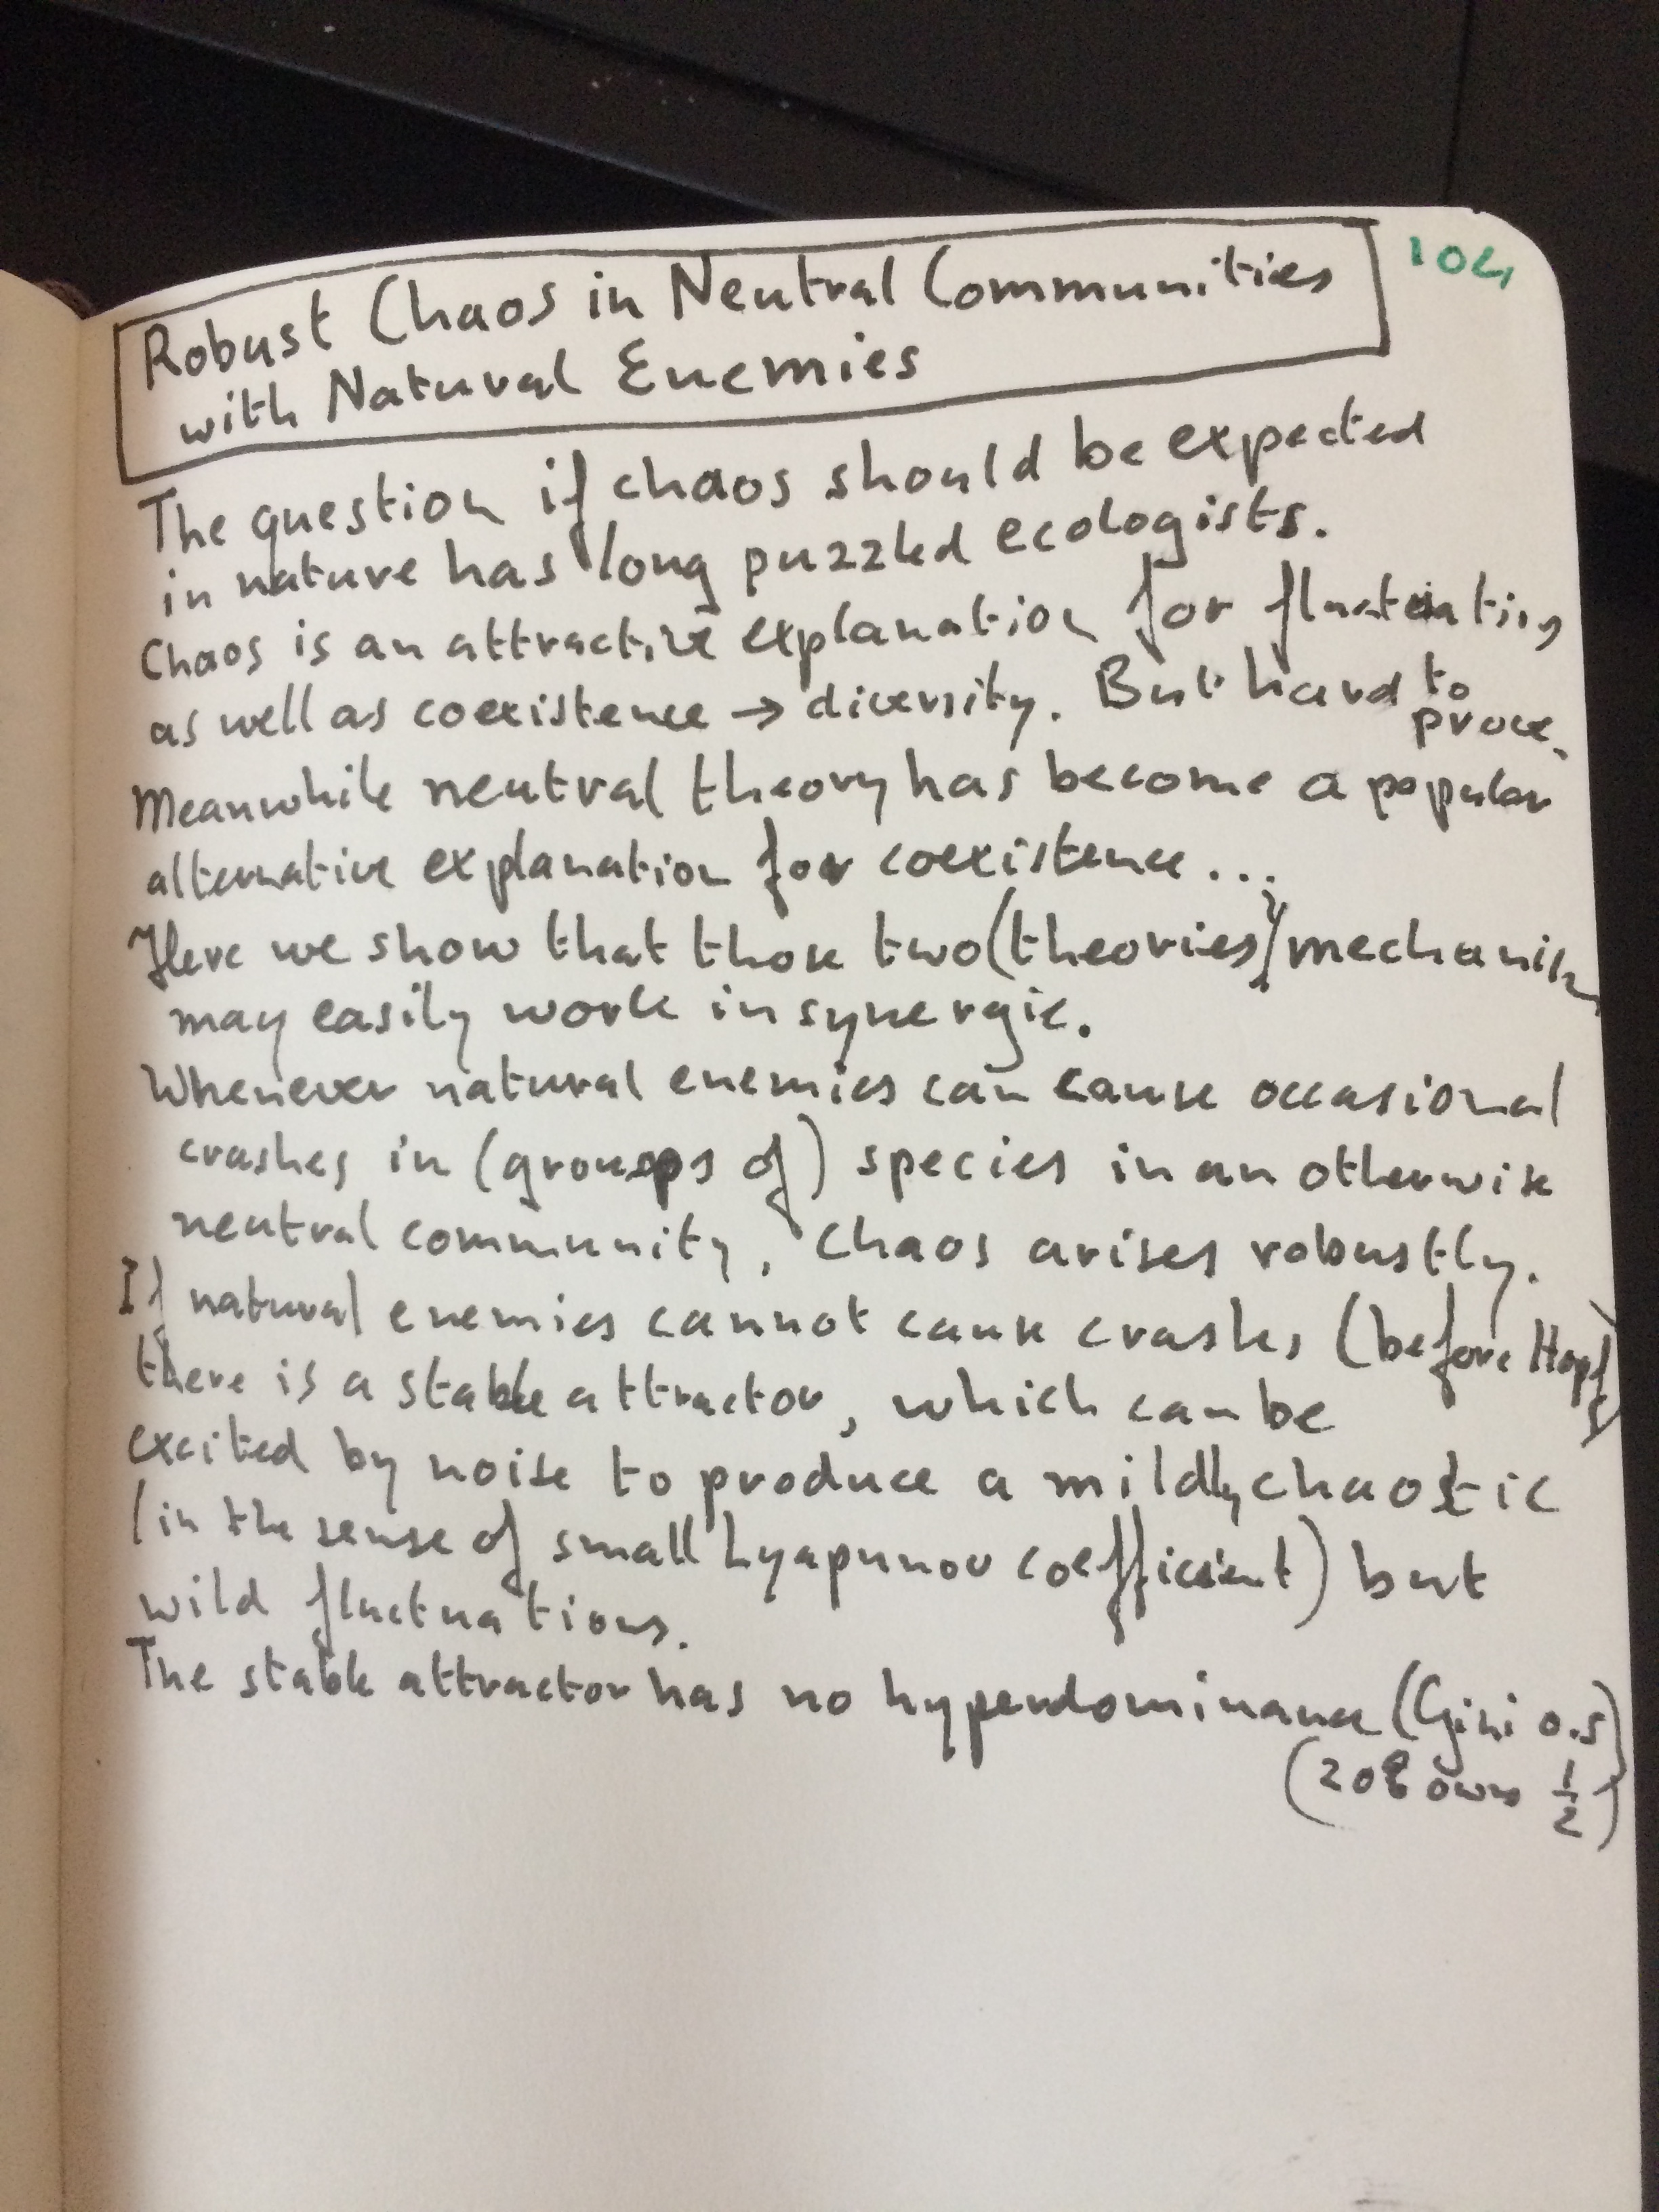 Robust Chaos in Neutral Communities
104
with Natural Enemies
The question if chaos should be expected
in nature has long puzzled ecologists.
Chaos is an attractive explanation for fluctuations
as well as coexistence → diversity. But hard to
prove.
Meanwhile neutral theory has become a popular
alternative explanation for coexistence...
Here we show that those two (theories)/mechanism
may easily work in synergie.
Whenever natural enemies can cause occasional
crashes in (groups of) species in an otherwise
neutral community, chaos arises robustly.
If natural enemies cannot cause crashes (before Hopf)
there is a stable attractor, which can be
excited by noise to produce a mildly chaotic
(in the sense of small Lyapunov coefficient) but
wild fluctuations.
The stable attractor has no hyperdominance (Gini 0.5)
(20% owns 1/2)